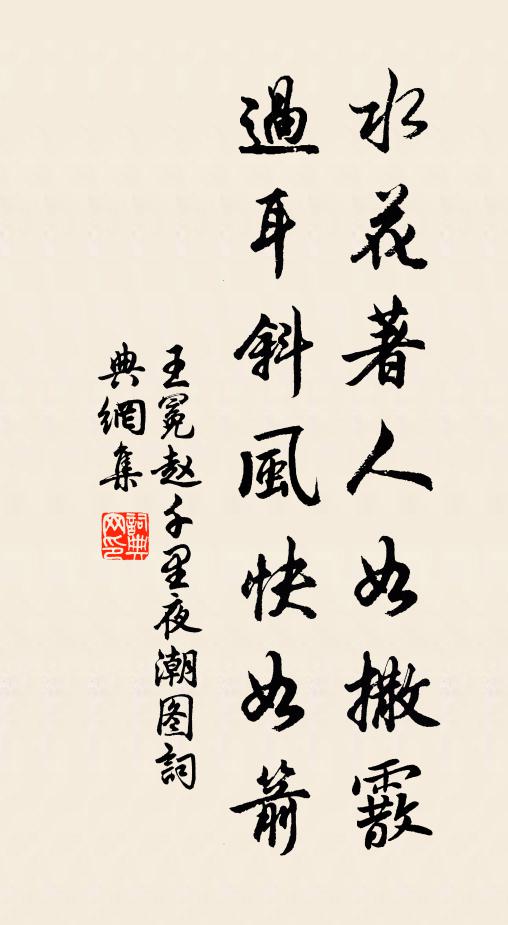 水花著人如撒霰
過耳斜風快如箭
王冕趙千里夜潮图詞
典網集
詞典網印